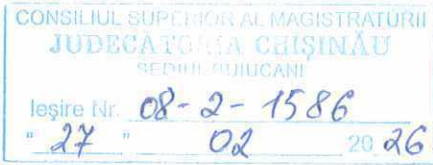 CONSILIUL SUPERIOR AL MAGISTRATURII
JUDECĂTORIA CHIŞINĂU
SEDIUL BUIUCANI
Ieşire Nr. 08-2-1586
" 27 " 02 20 26